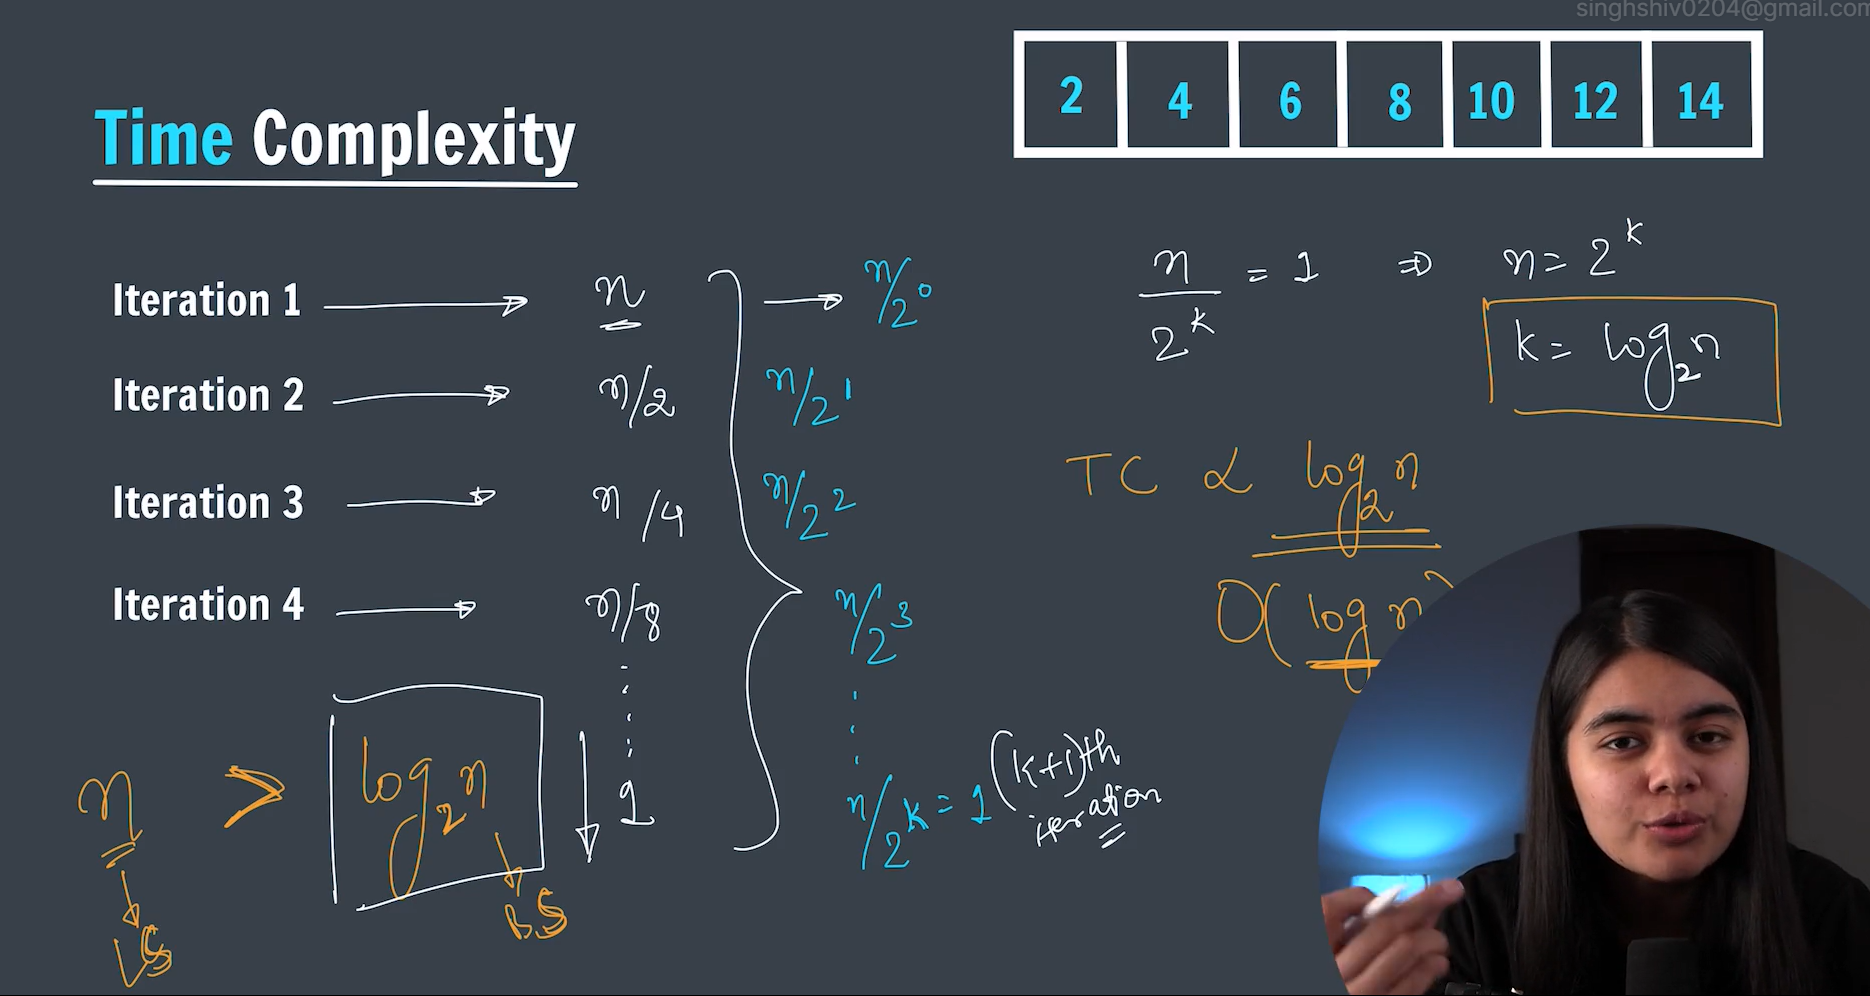 singhshiv0204@gmail.com
2 4 6 8 10 12 14
Time Complexity
Iteration 1 → n → n/2^0
Iteration 2 → n/2 n/2^1
Iteration 3 → n/4 n/2^2
Iteration 4 → n/8 n/2^3
1
n/2^k = 1 (k+1)th
iteration
n/2^k = 1 ⇒ n = 2^k
k = log₂n
TC ∝ log₂n
O(log n)
n > log₂n
LS
BS